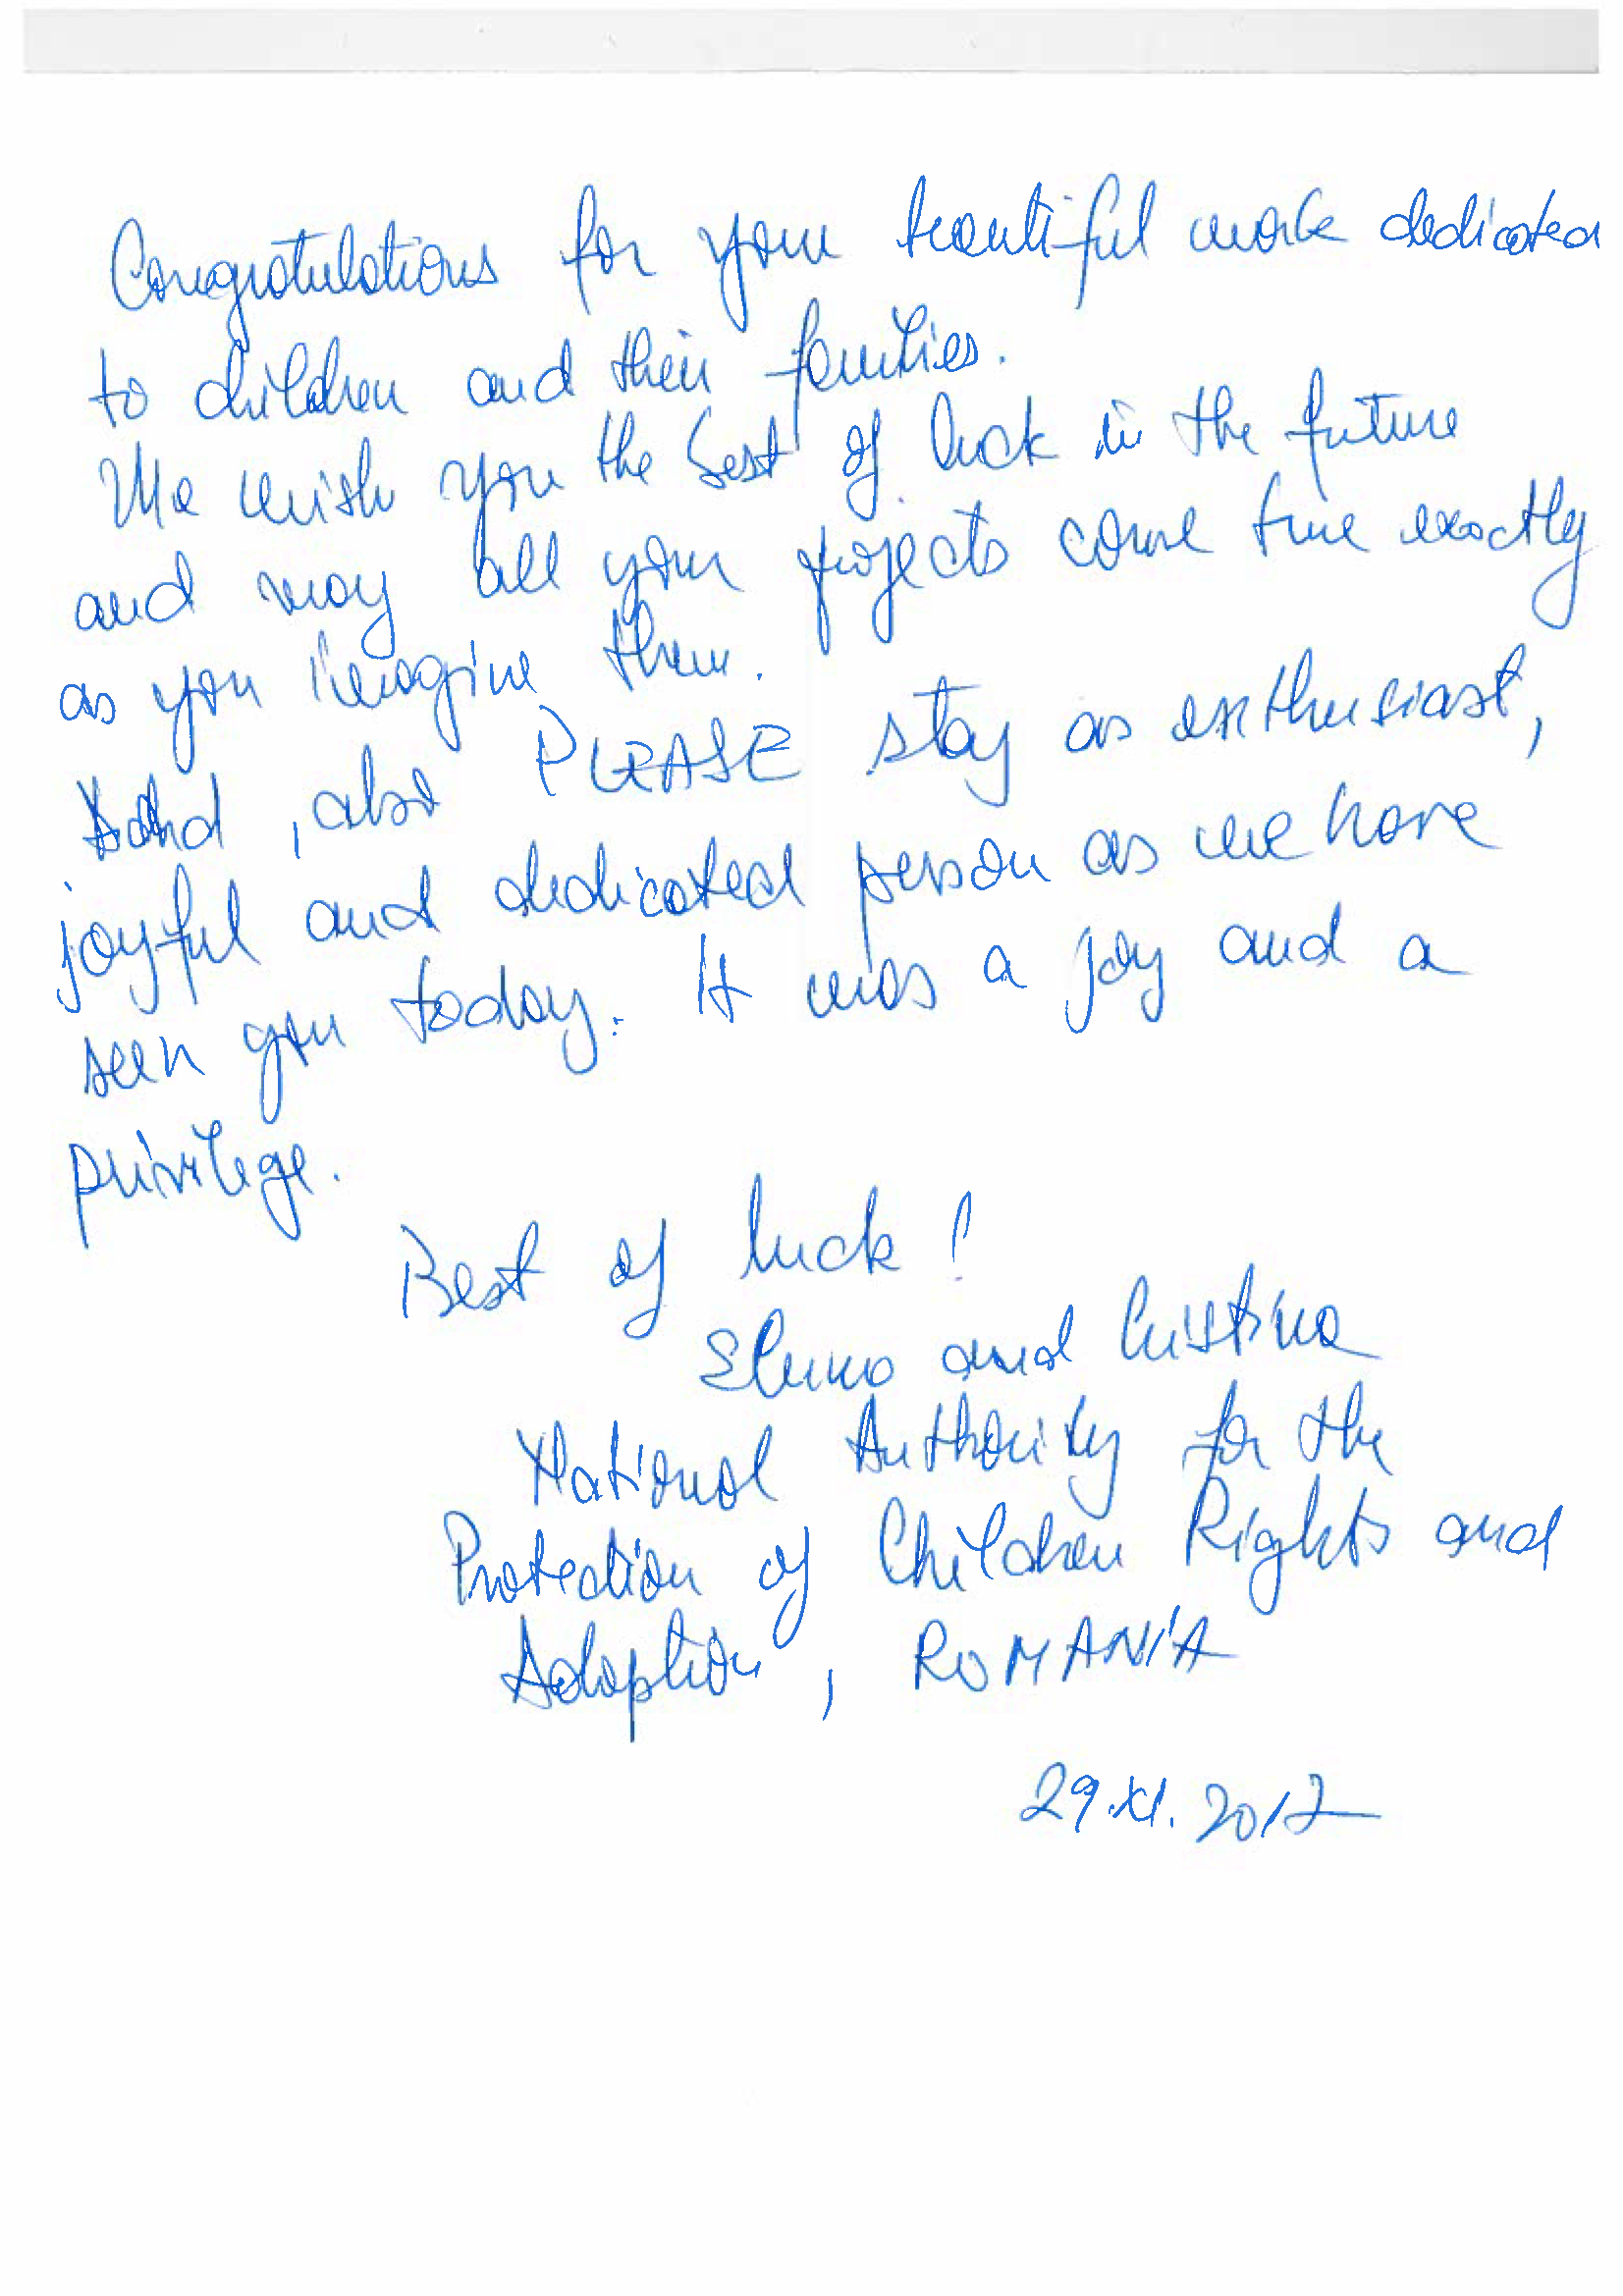 Congratulations for your beautiful work dedicated
to children and their families.
We wish you the best of luck in the future
and may all your projects come true exactly
as you imagine them.
And, also PLEASE stay as enthusiast,
joyful and dedicated person as we have
seen you today. It was a joy and a
privilege.
Best of luck!
and Cristina
National Authority for the
Protection of Children Rights and
Adoption, ROMANIA
29.XI.2012